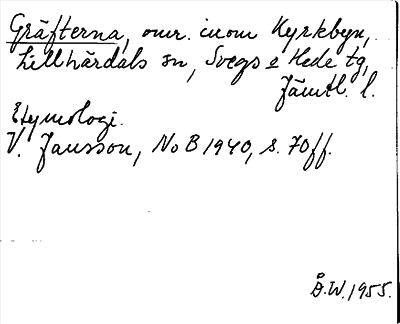 Gräfterna, omr. inom Kyrkbyn,
Lillhärdals sn, Svegs o Hede tg,
Jämtl. l.
Etymologi.
V. Jansson, NoB 1940, s. 70ff.
Å.W. 1955.